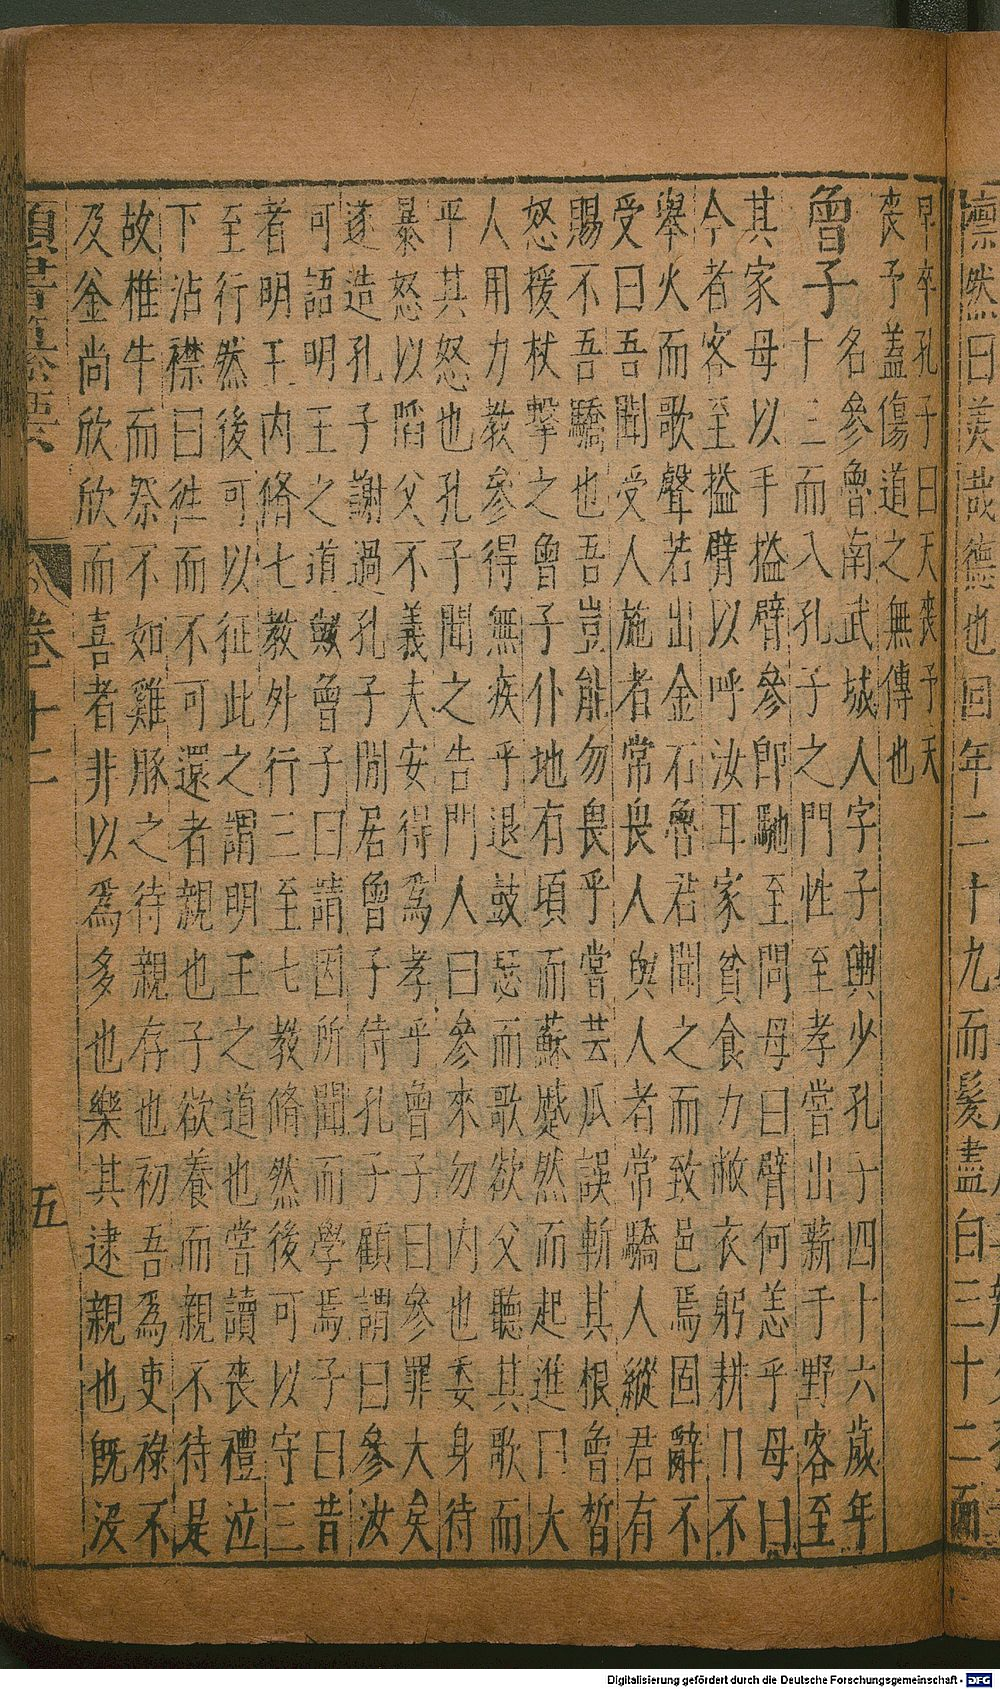 凛然曰美哉德也回年二十九而髮盡白三十二而
早卒孔子曰天喪予天
喪予蓋傷道之無傳也
曾子
名參魯南武城人字子輿少孔子四十六歲年
十三而入孔子之門性至孝嘗出薪于野客至
其家母以手搤臂參即馳至問母曰臂何恙乎母曰
今者客至搤臂以呼汝耳家貧食力敝衣躬耕日不
舉火而歌聲若出金石魯君聞之而致邑焉固辭不
受曰吾聞受人施者常畏人與人者常驕人縱君有
賜不吾驕也吾豈能勿畏乎嘗芸瓜誤斬其根曾晳
怒援杖擊之曾子仆地有頃而蘇蹙然而起進曰大
人用力教參得無疾乎退鼓瑟而歌欲父聽其歌而
平其怒也孔子聞之告門人曰參來勿內也委身待
暴怒以陷父不義夫安得為孝乎曾子曰參罪大矣
遂造孔子謝過孔子閒居曾子侍孔子顧謂曰參汝
可語明王之道歟曾子曰請因所聞而學焉子曰昔
者明王內脩七教外行三至七教脩然後可以守三
至行然後可以征此之謂明王之道也嘗讀喪禮泣
下沾襟曰徃而不可還者親也子欲養而親不待是
故椎牛而祭不如雞豚之待親存也初吾為吏祿不
及釜尚欣欣而喜者非以為多也樂其逮親也既沒
卷二十二
五
Digitalisierung gefördert durch die Deutsche Forschungsgemeinschaft - DFG